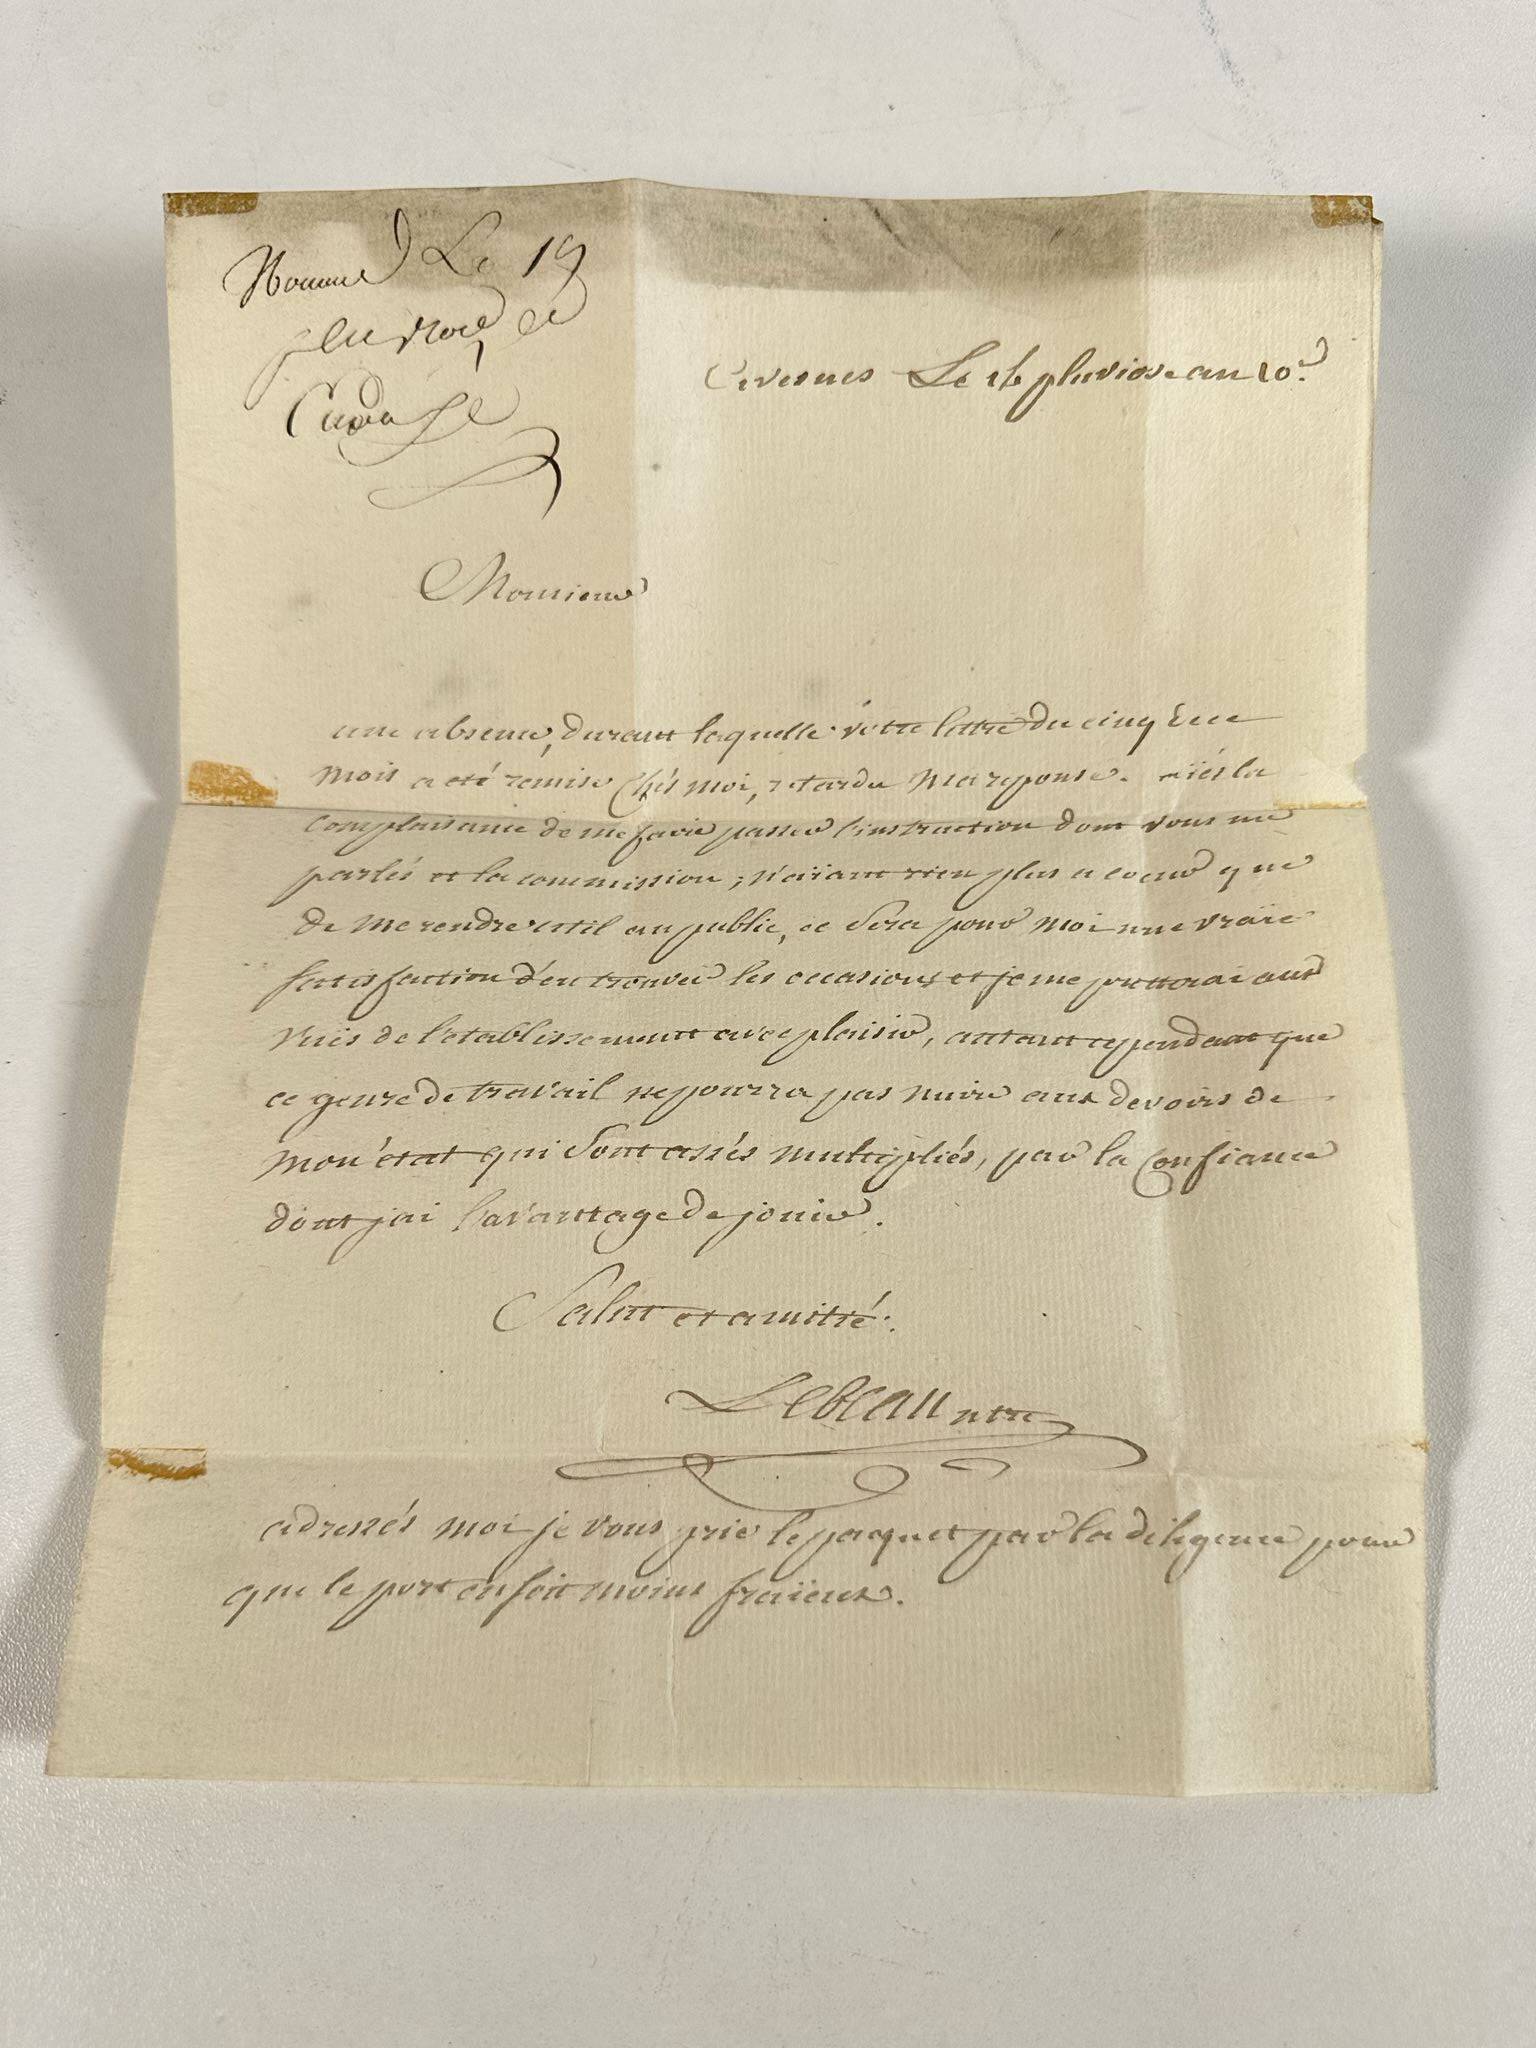 Nommé Le 19
pluviose
Avesnes Le 16 pluviose an 10.e
Monsieur
une absence, durant laquelle votre lettre du cinq de ce
mois a eté remise chés moi, retarda ma reponse. aiés la
complaisance de me faire passer l'instruction dont vous me
parlés et la commission ; n'aïant rien plus a coeur que
de me rendre util au public, ce sera pour moi une vraïe
satisfaction d'en trouver les occasions et je me pretterai aux
vuës de l'etablissement avec plaisir, autant cependant que
ce genre de travail ne pourra pas nuire aux devoirs de
mon état qui sont assés multipliés, par la confiance
dont jai l'avantage de jouir.
Salut et amitié.
Lebeau ntre
adressés moi je vous prie le paquet par la diligence pour
que le port en soit moins fraïeux.